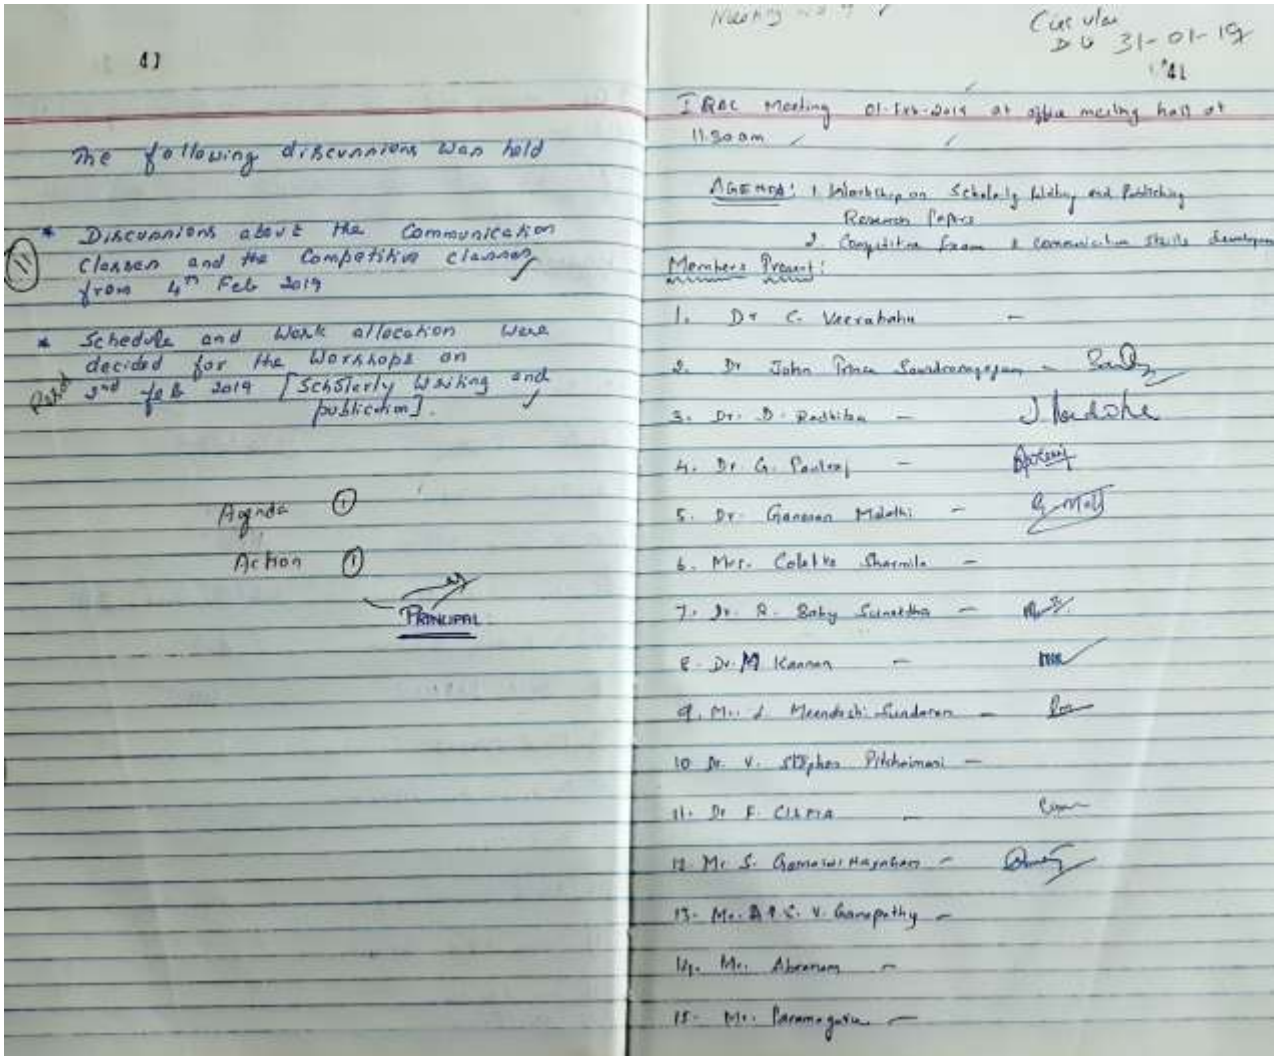 41
The following discunnions wan held
* Discunnions about the Communication
Classes and the Competitive classes
from 4th Feb 2019
11
* Schedule and Work allocation were
decided for the Workshops on
2nd feb 2019 [Scholerly Writing and
publication].
Agnda 1
Action 1
PRINCIPAL
Meeting
Circular
31-01-19
41
IQAC Meeting 01-Feb-2019 at office meeting hall at
11.30am
AGENDA: 1 Workshop on Scholarly Writing and Publishing
Research Papers
2. Competitive Exam & communication skills
Members Present:
1. Dr C. Veerabahu -
2. Dr John Prince Soundranayagam -
3. Dr. D. Radhika -
4. Dr G. Paulraj -
5. Dr. Ganesan Malathi -
6. Mrs. Colette Sharmila -
7. Dr. R. Baby Sunektha -
8. Dr. M Kannan -
9. Mr. Meenakshi Sundaran -
10 Dr. V. Stephen Pitchaimani -
11. Dr F. -
12 Mr. S. -
13. Mr. A.P.C. V. Ganapathy -
14. Mr. Abraham -
15. Mr. -